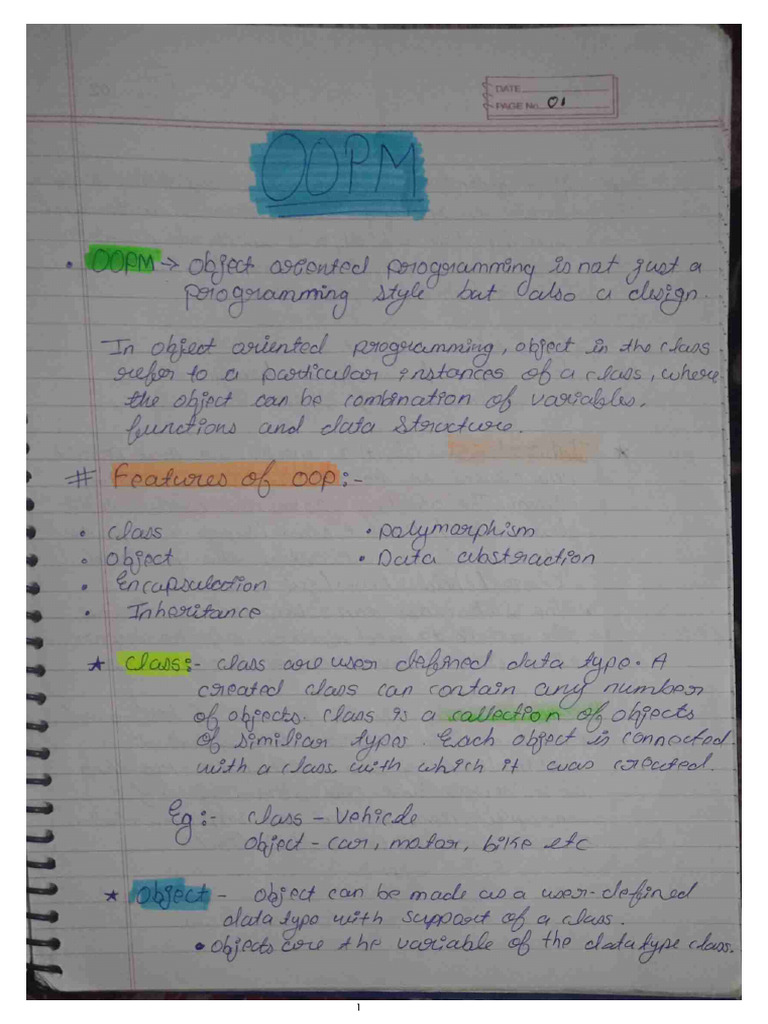 DATE
PAGE No. 01
OOPM
• OOPM → Object oriented programming is not just a
programming style but also a design.
In object oriented programming, object in the class
refer to a particular instances of a class, where
the object can be combination of variables,
functions and data structure.
# Features of OOP:-
• Class • Polymorphism
• Object • Data abstraction
• Encapsulation
• Inheritance
★ Class:- Class are user defined data type. A
created class can contain any number
of objects. Class is a collection of objects
of similiar types. Each object is connected
with a class with which it was created.
Eg:- Class - Vehicle
Object - car, motar, bike etc
★ Object - Object can be made as a user-defined
data type with support of a class.
• Objects are the variable of the data type class.
1